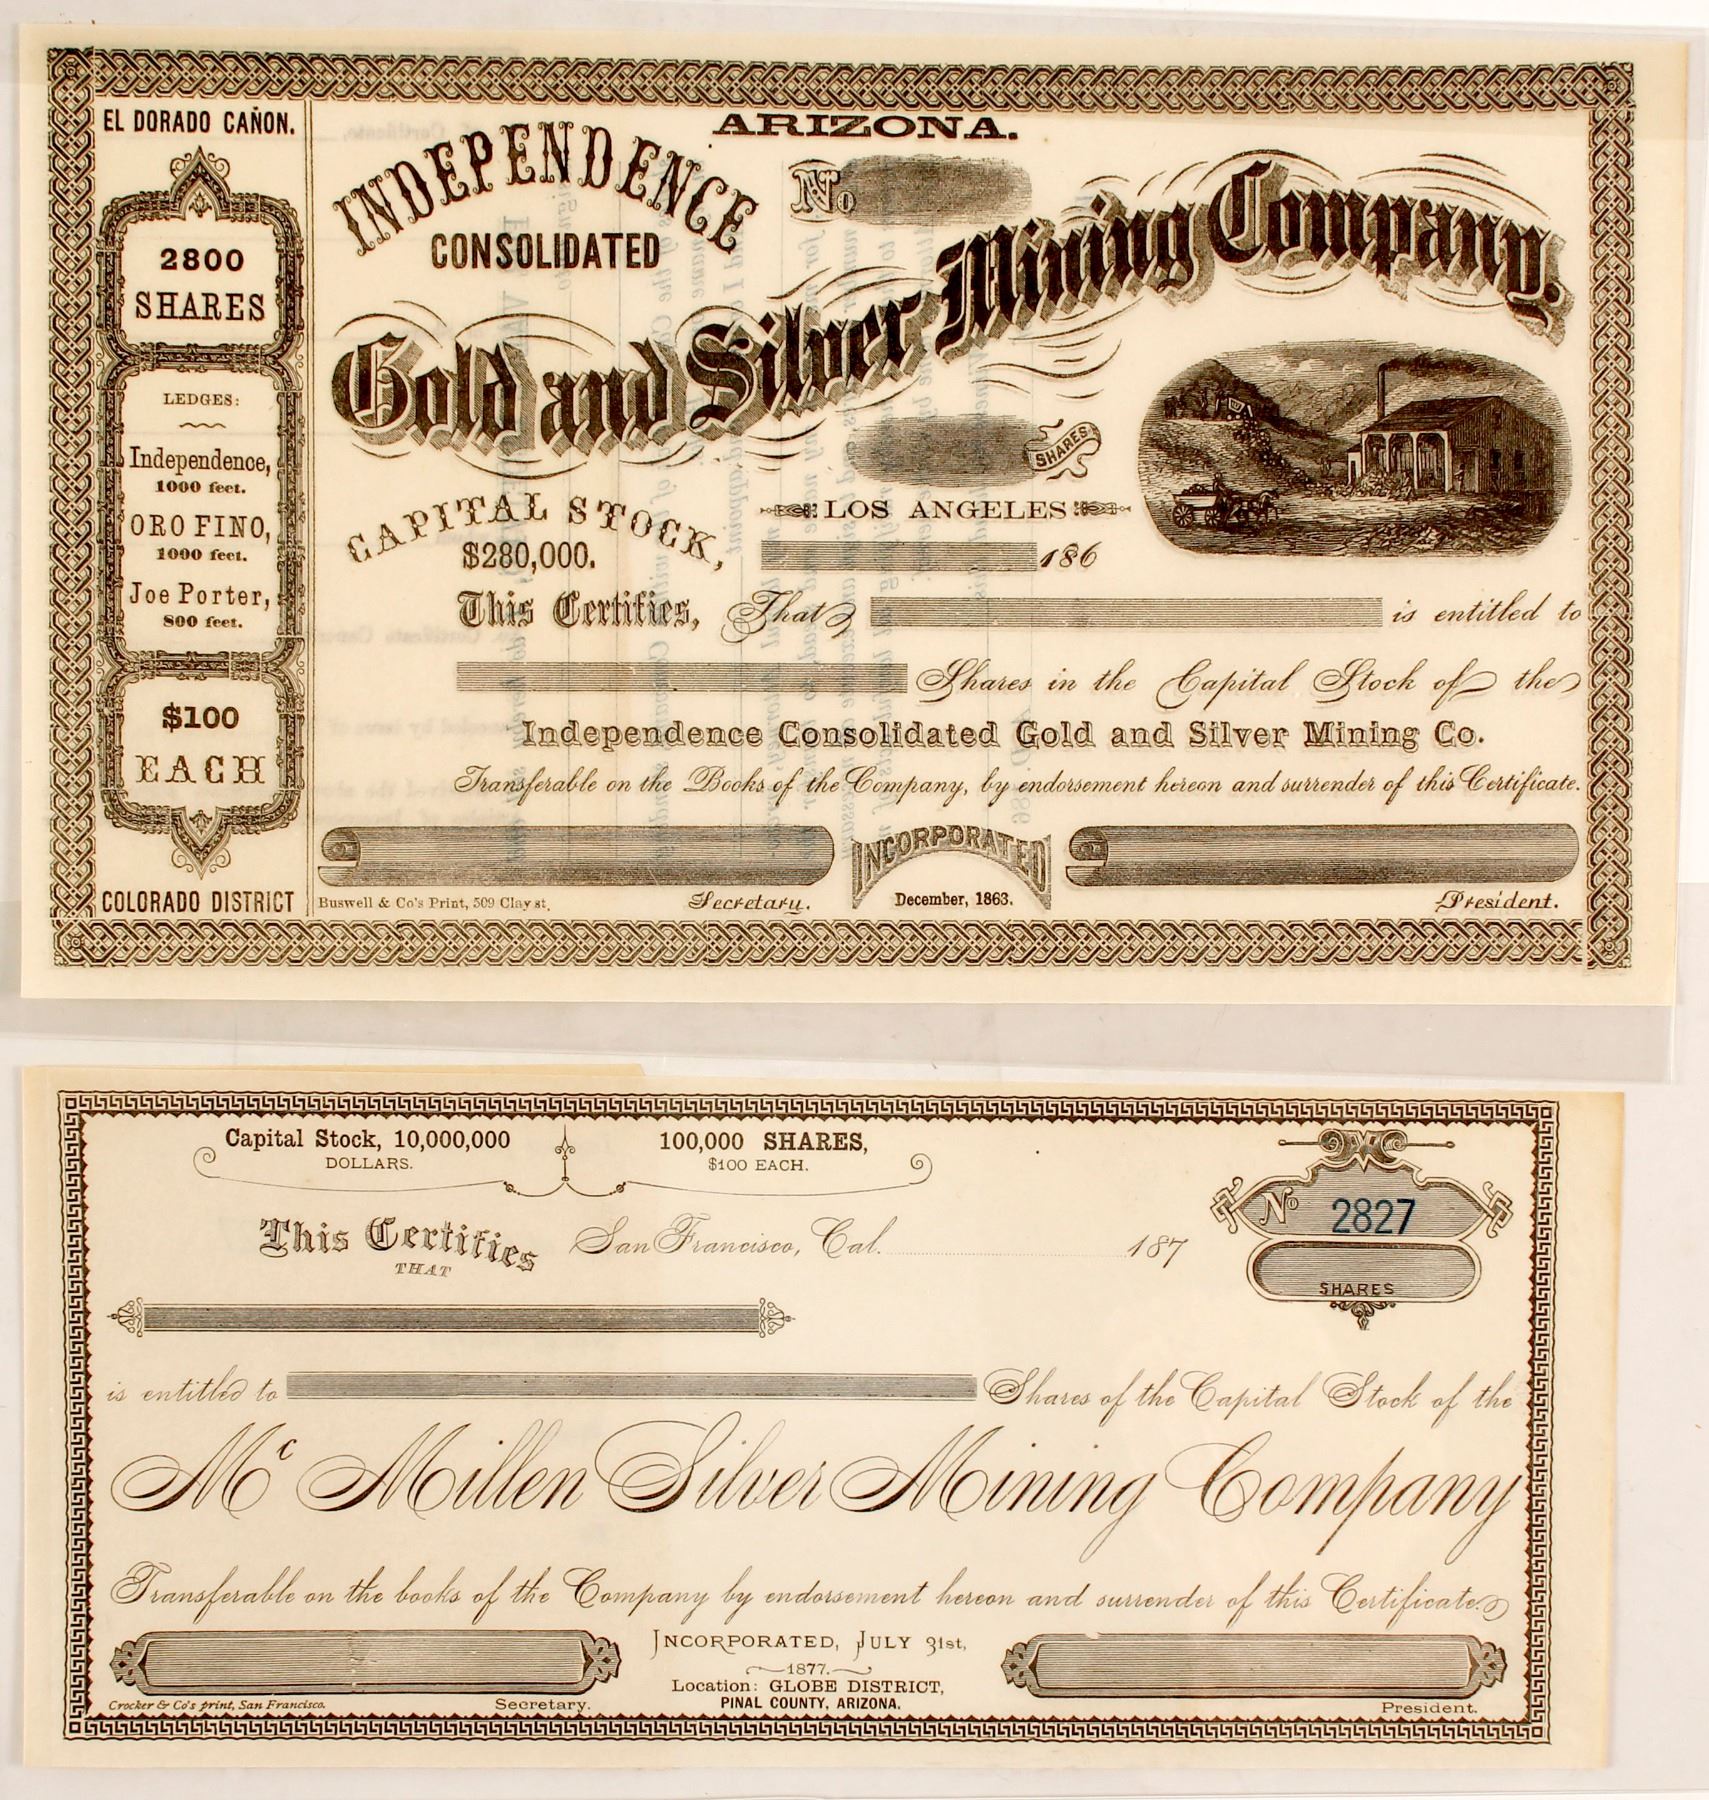 EL DORADO CAÑON.
2800
SHARES
LEDGES:
Independence,
1000 feet.
ORO FINO,
1000 feet.
Joe Porter,
800 feet.
$100
EACH
COLORADO DISTRICT
ARIZONA.
INDEPENDENCE
CONSOLIDATED
No
Gold and Silver Mining Company.
SHARES
CAPITAL STOCK,
$280,000.
LOS ANGELES
186
This Certifies, That
is entitled to
Shares in the Capital Stock of the
Independence Consolidated Gold and Silver Mining Co.
Transferable on the Books of the Company, by endorsement hereon and surrender of this Certificate.
INCORPORATED
December, 1863.
Buswell & Co's Print, 509 Clay st.
Secretary.
President.
Capital Stock, 10,000,000
DOLLARS.
100,000 SHARES,
$100 EACH.
No 2827
SHARES
This Certifies
THAT
San Francisco, Cal. 187
is entitled to
Shares of the Capital Stock of the
Mc Millen Silver Mining Company
Transferable on the books of the Company by endorsement hereon and surrender of this Certificate.
INCORPORATED, JULY 31st,
1877.
Location: GLOBE DISTRICT,
PINAL COUNTY, ARIZONA.
Crocker & Co's print, San Francisco.
Secretary.
President.